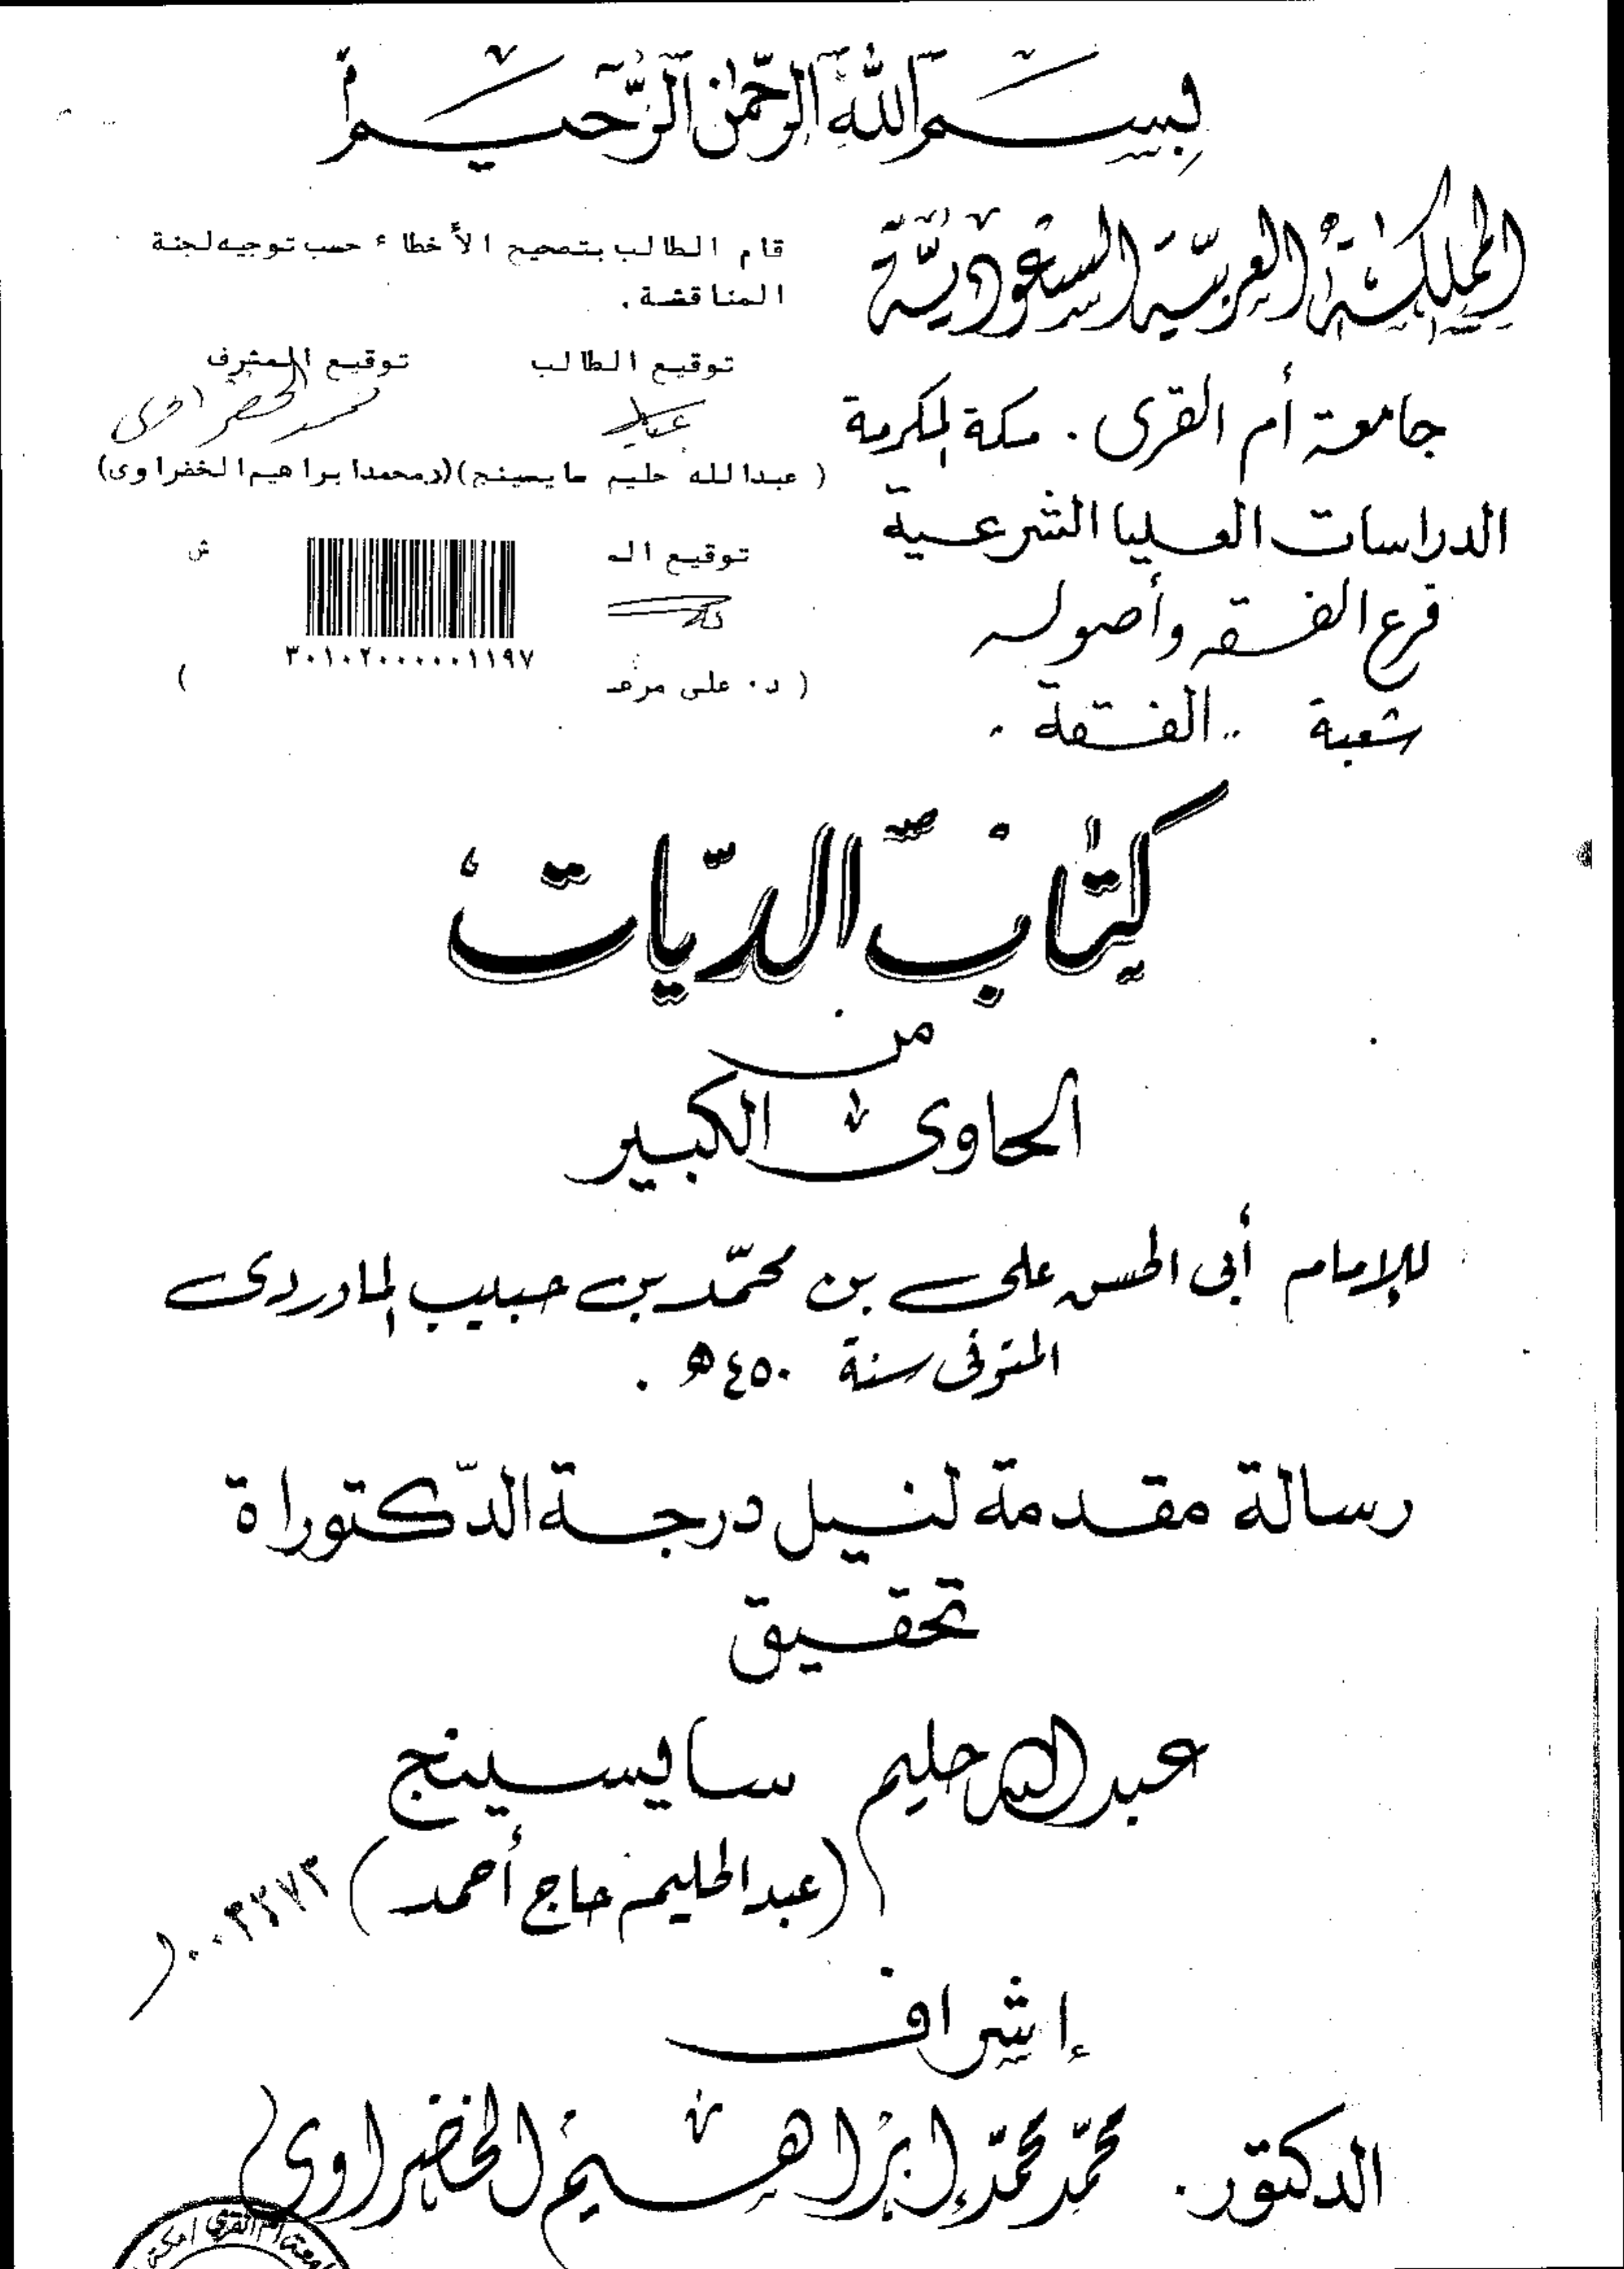 بسم الله الرحمن الرحيم
المملكة العربية السعودية
جامعة أم القرى . مكة المكرمة
الدراسات العليا الشرعية
فرع الفقه وأصوله
شعبة .. الفقه .
قام الطالب بتصحيح الأخطاء حسب توجيه لجنة
المناقشة .
توقيع الطالب توقيع المشرف
محمد الخضراوى
( عبدالله حليم سايسينج ) ( د.محمد ابراهيم الخضراوى )
توقيع الـ ش
٣٠١٠٢٠٠٠٠٠٠١١٩٧
( د. على مرعـ )
كتاب الديات
من
الحاوى الكبير
للإمام أبى الحسن على بن محمد بن حبيب الماوردى
المتوفى سنة ٤٥٠ هـ .
رسالة مقدمة لنيل درجة الدكتوراة
تحقيق
عبد الله حليم سايسينج
(عبد الحليم حاج أحمد)
إشراف
الدكتور. محمد محمد إبراهيم الخضراوى
أم القرى